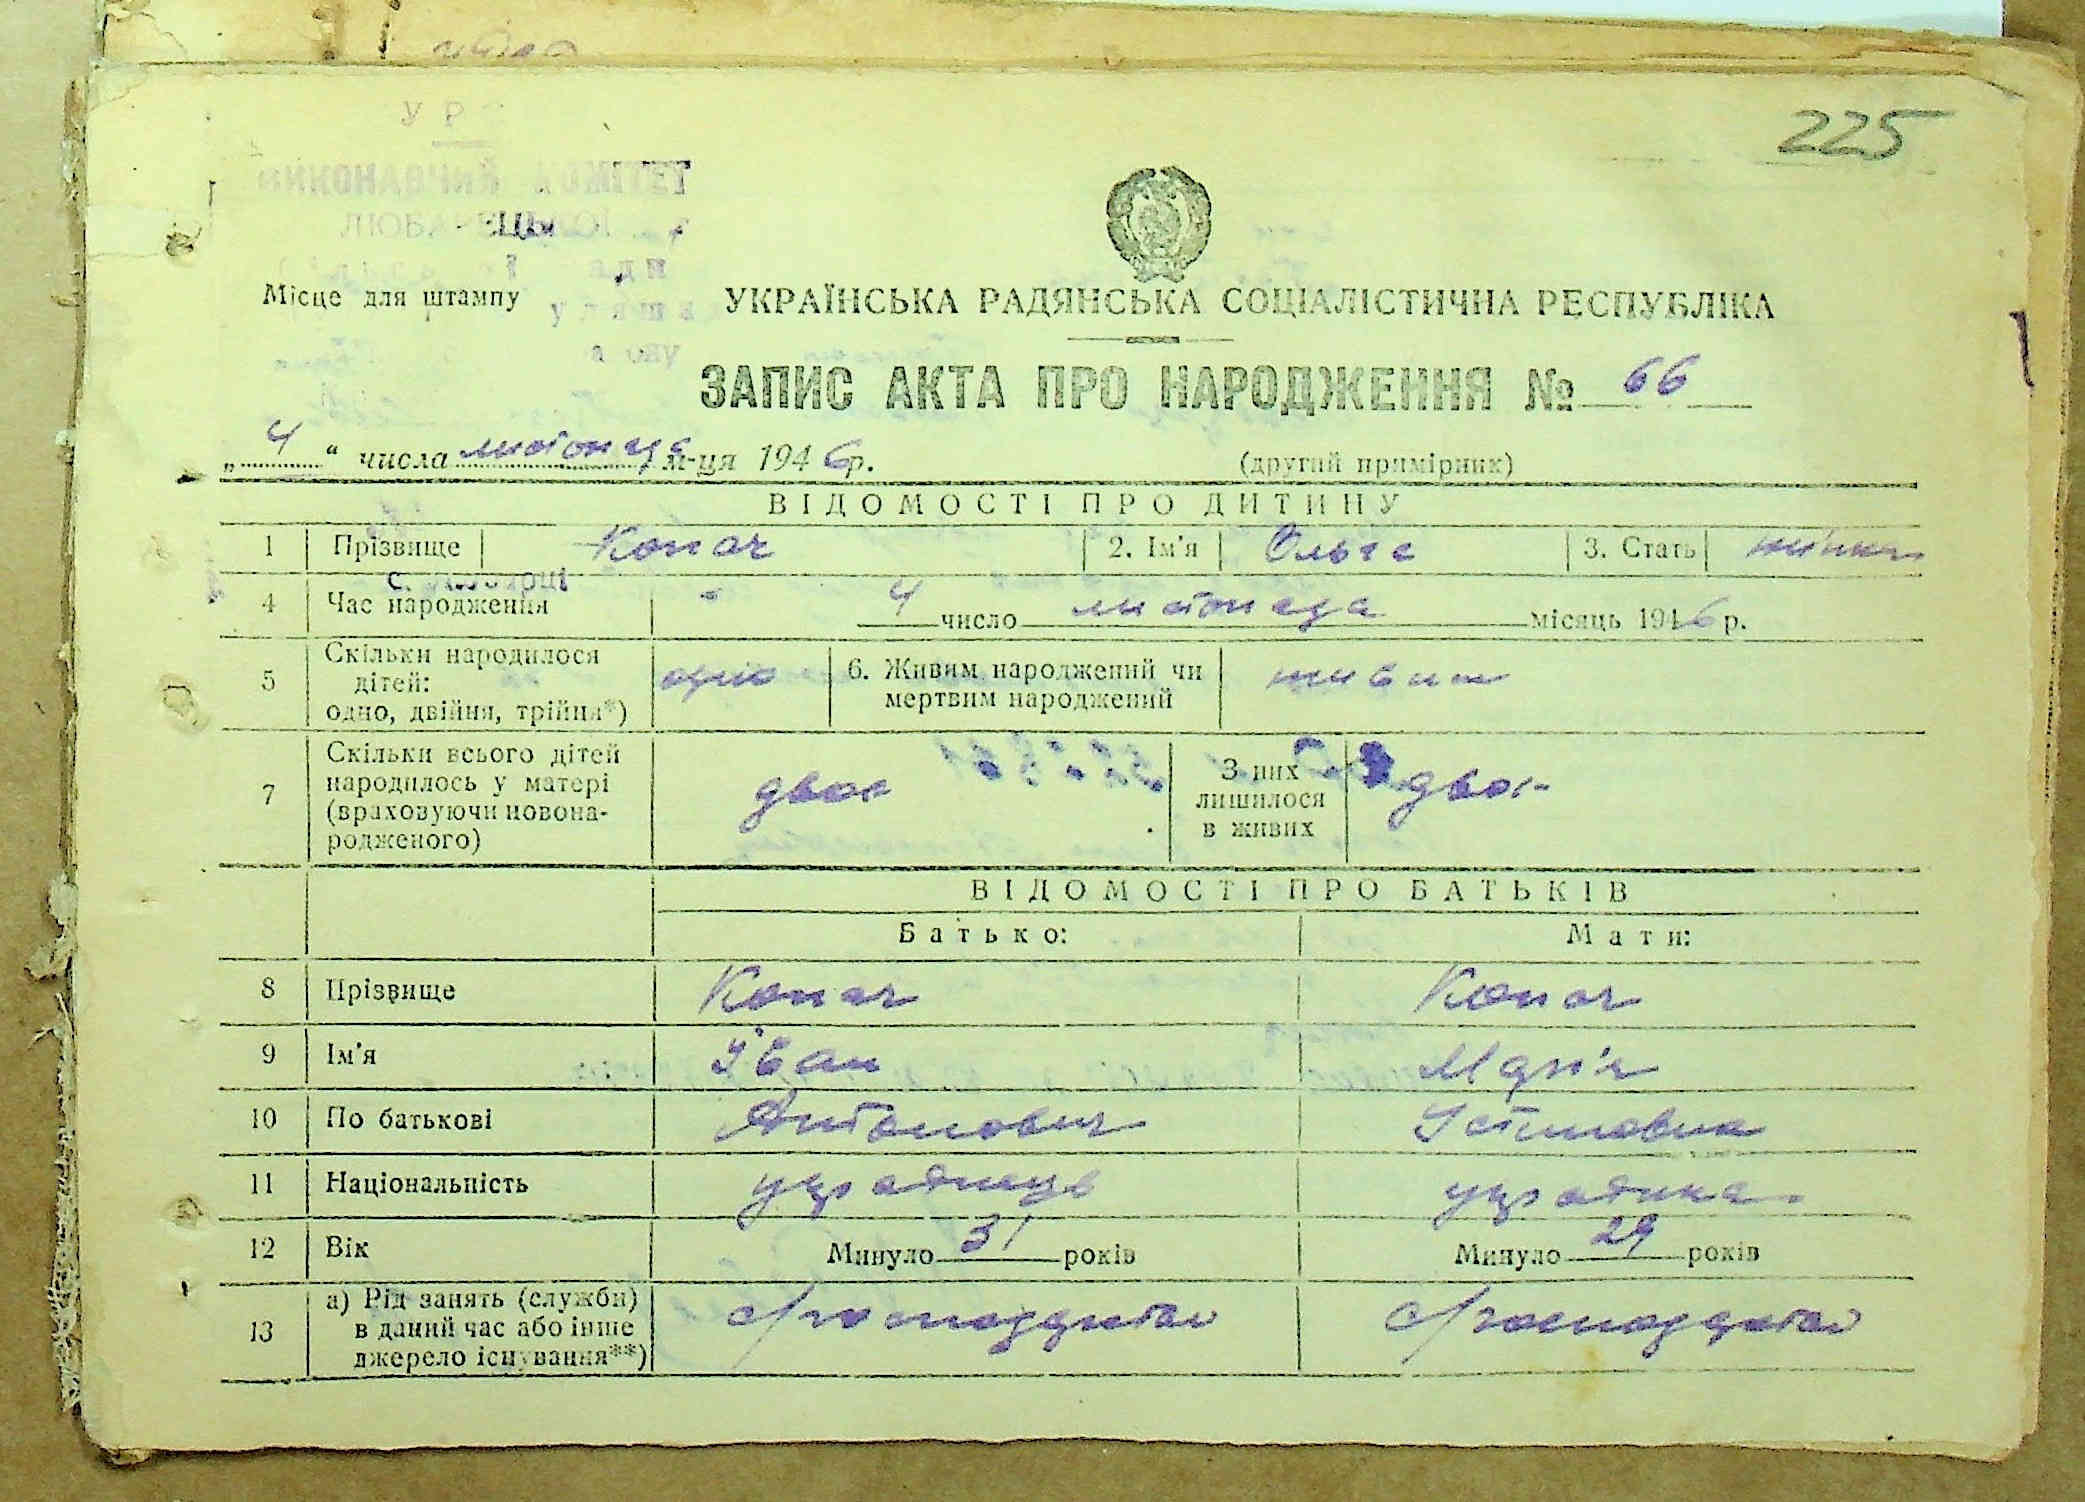 225
УР
ВИКОНАВЧИЙ КОМІТЕТ
Місце для штампу
УКРАЇНСЬКА РАДЯНСЬКА СОЦІАЛІСТИЧНА РЕСПУБЛІКА
ЗАПИС АКТА ПРО НАРОДЖЕННЯ № 66
„ 4 “ числа листопада м-ця 1946 р.
(другий примірник)
ВІДОМОСТІ ПРО ДИТИНУ
1 Прізвище Копач 2. Ім'я Ольга 3. Стать жіноч
4 Час народження 4 число листопада місяць 1946 р.
5 Скільки народилося дітей: одно, двійня, трійня*) одно 6. Живим народжений чи мертвим народжений живим
7 Скільки всього дітей народилось у матері (враховуючи новонародженого) двоє З них лишилося в живих двоє
ВІДОМОСТІ ПРО БАТЬКІВ
Батько: Мати:
8 Прізвище Копач Копач
9 Ім'я Іван Марія
10 По батькові Антонович Устиновна
11 Національність українець українка
12 Вік Минуло 31 років Минуло 29 років
13 а) Рід занять (служби) в даний час або інше джерело існування**) с/господарстві с/господарстві